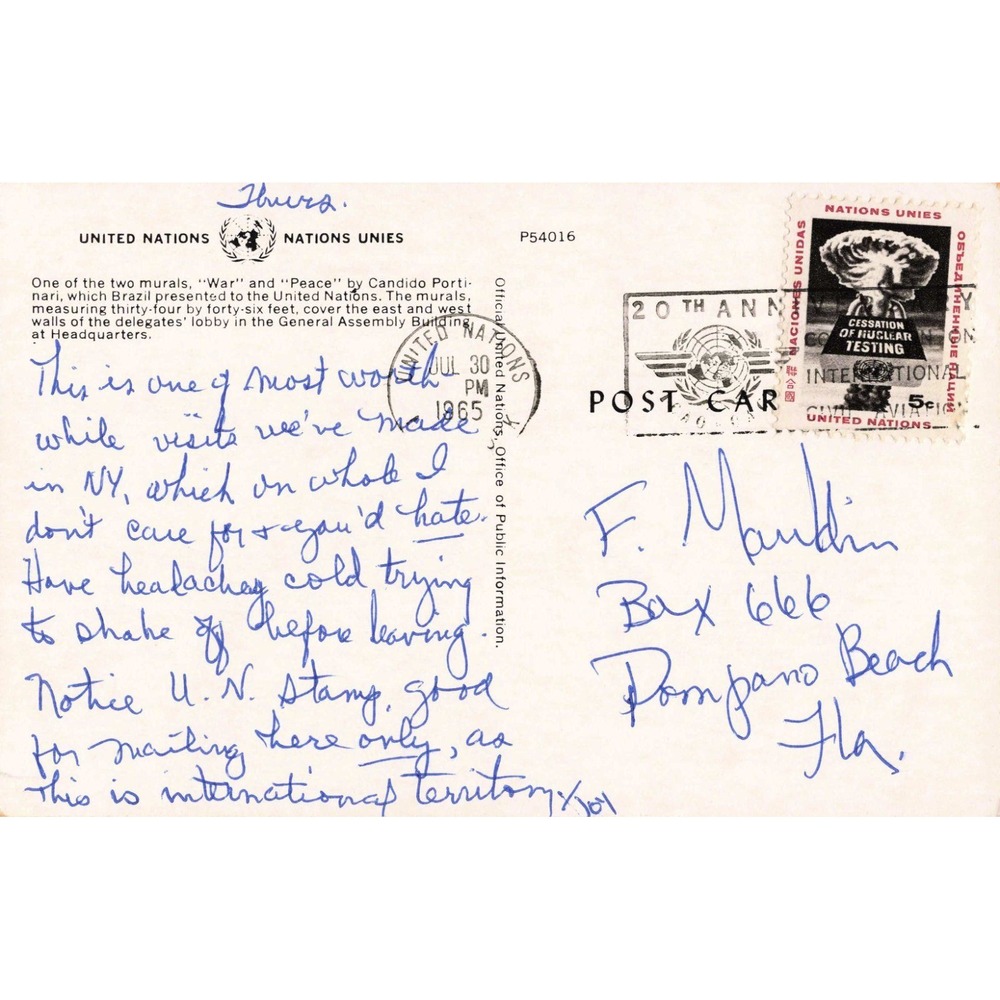 Thurs.
UNITED NATIONS NATIONS UNIES
P54016
One of the two murals, "War" and "Peace" by Candido Porti-
nari, which Brazil presented to the United Nations. The murals,
measuring thirty-four by forty-six feet, cover the east and west
walls of the delegates' lobby in the General Assembly Building
at Headquarters.
This is one of most worth
while visits we've made
in NY, which on whole I
don't care for & you'd hate.
Have headachey cold trying
to shake off before leaving.
Notice U.N. stamp, good
for mailing here only, as
this is international territory.
Official United Nations, Office of Public Information.
UNITED NATIONS
JUL 30
PM
1965
20TH ANN
INTERNATIONAL
CIVIL AVIATION
POST CAR
NATIONS UNIES
NACIONES UNIDAS
ОБЪЕДИНЕННЫЕ НАЦИИ
聯合國
CESSATION
OF NUCLEAR
TESTING
5c
UNITED NATIONS
F. Mauldin
Box 666
Pompano Beach
Fla.